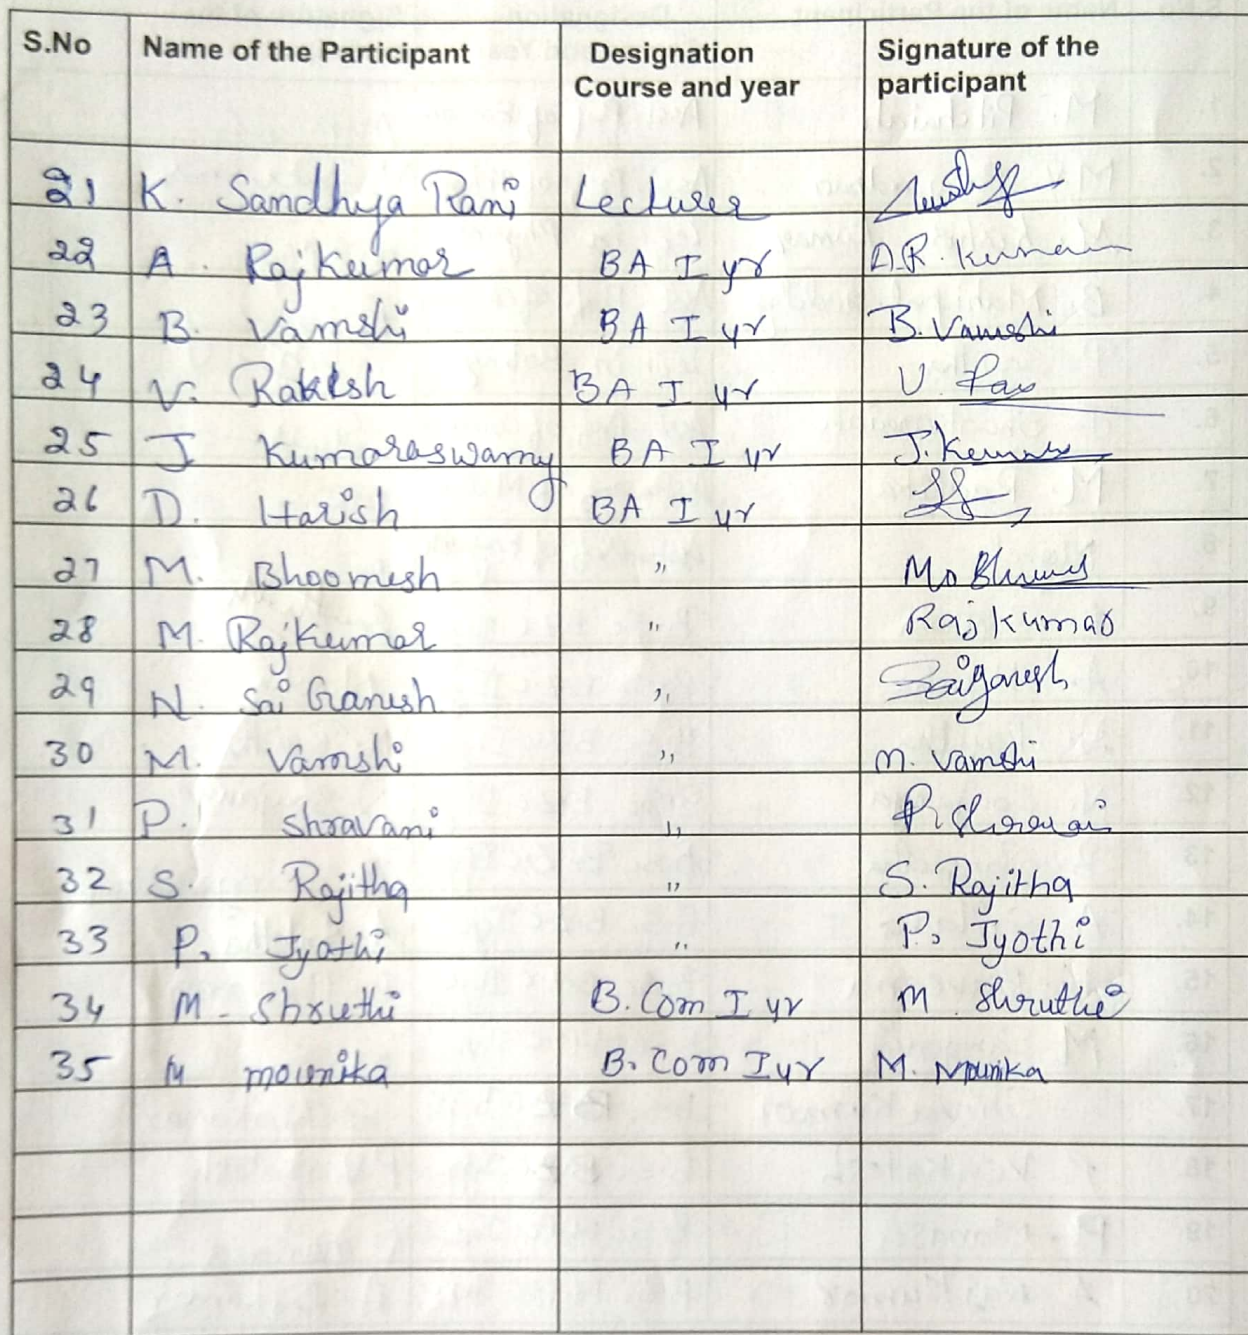 S.No Name of the Participant Designation Signature of the
Course and year participant
21 K. Sandhya Rani Lecturer
22 A. Rajkumar BA I yr A.R. Kumar
23 B. Vamshi BA I yr B. Vamshi
24 V. Rakesh BA I yr V.
25 J Kumaraswamy BA I yr J. Kumar
26 D. Harish BA I yr
27 M. Bhoomesh " M.
28 M. Rajkumar " Rajkumar
29 N. Sai Ganesh " Saiganesh
30 M. Vamshi " M. Vamshi
31 P. Shravani " P. Shravani
32 S. Rajitha " S. Rajitha
33 P. Jyothi " P. Jyothi
34 M. Shruthi B. Com I yr M. Shruthi
35 M mounika B. Com I yr M. Mounika